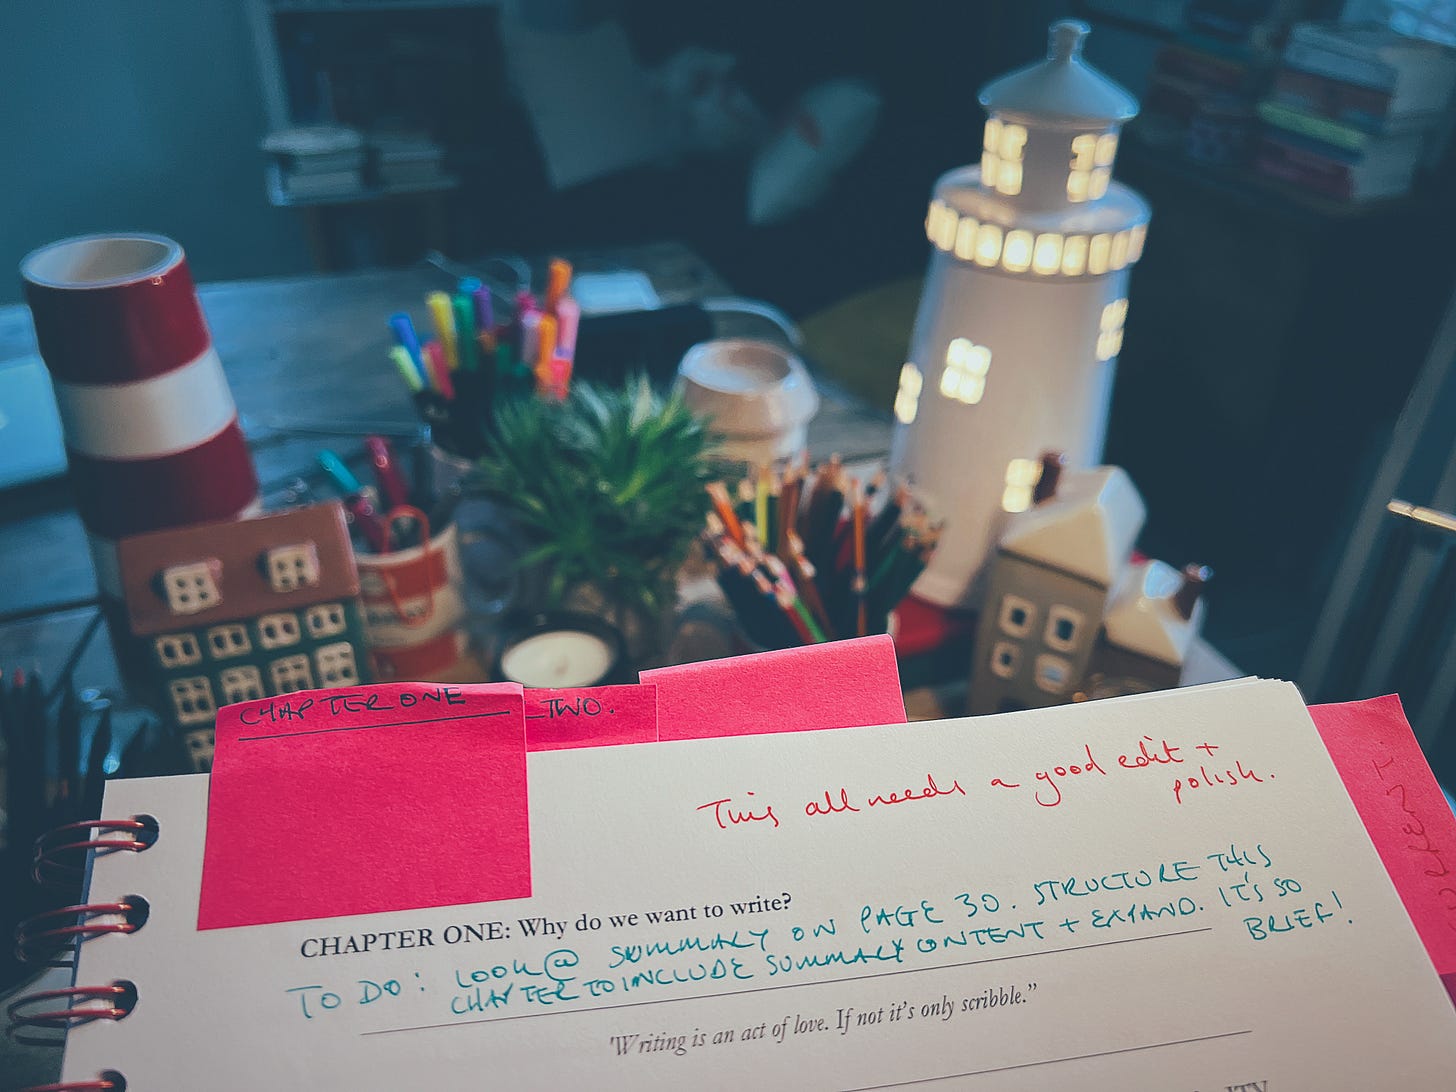 CHAPTER ONE
TWO.
This all needs a good edit +
polish.
CHAPTER ONE: Why do we want to write?
TO DO: LOOK @ SUMMARY ON PAGE 30. STRUCTURE THIS
CHAPTER TO INCLUDE SUMMARY CONTENT + EXPAND. IT'S SO
BRIEF!
'Writing is an act of love. If not it's only scribble."